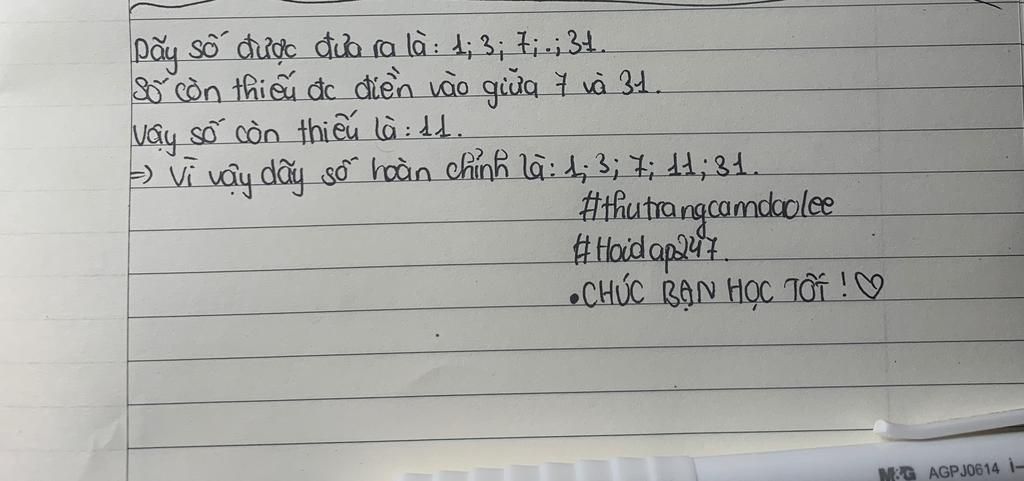 Dãy số được đưa ra là: 1; 3; 7; .; 31.
Số còn thiếu đc điền vào giữa 7 và 31.
Vậy số còn thiếu là: 11.
=> Vì vậy dãy số hoàn chỉnh là: 1; 3; 7; 11; 31.
#thutrangcamdaolee
#Hoidap247.
• CHÚC BẠN HỌC TỐT ! ♡
M&G AGPJ0614